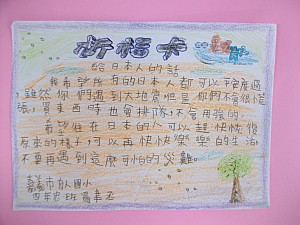 祈福卡
給日本人的話
我希望所有的日本人都可以平安度過
,雖然你們遇到大地震但是你們不會很慌
張,買東西時也會排隊,不會用強的。
希望住在日本的人可以趕快恢復
原來的樣子,可以再快快樂樂的生活,
不要再遇到這麼可怕的災難。
嘉義市育人國小
四年
班